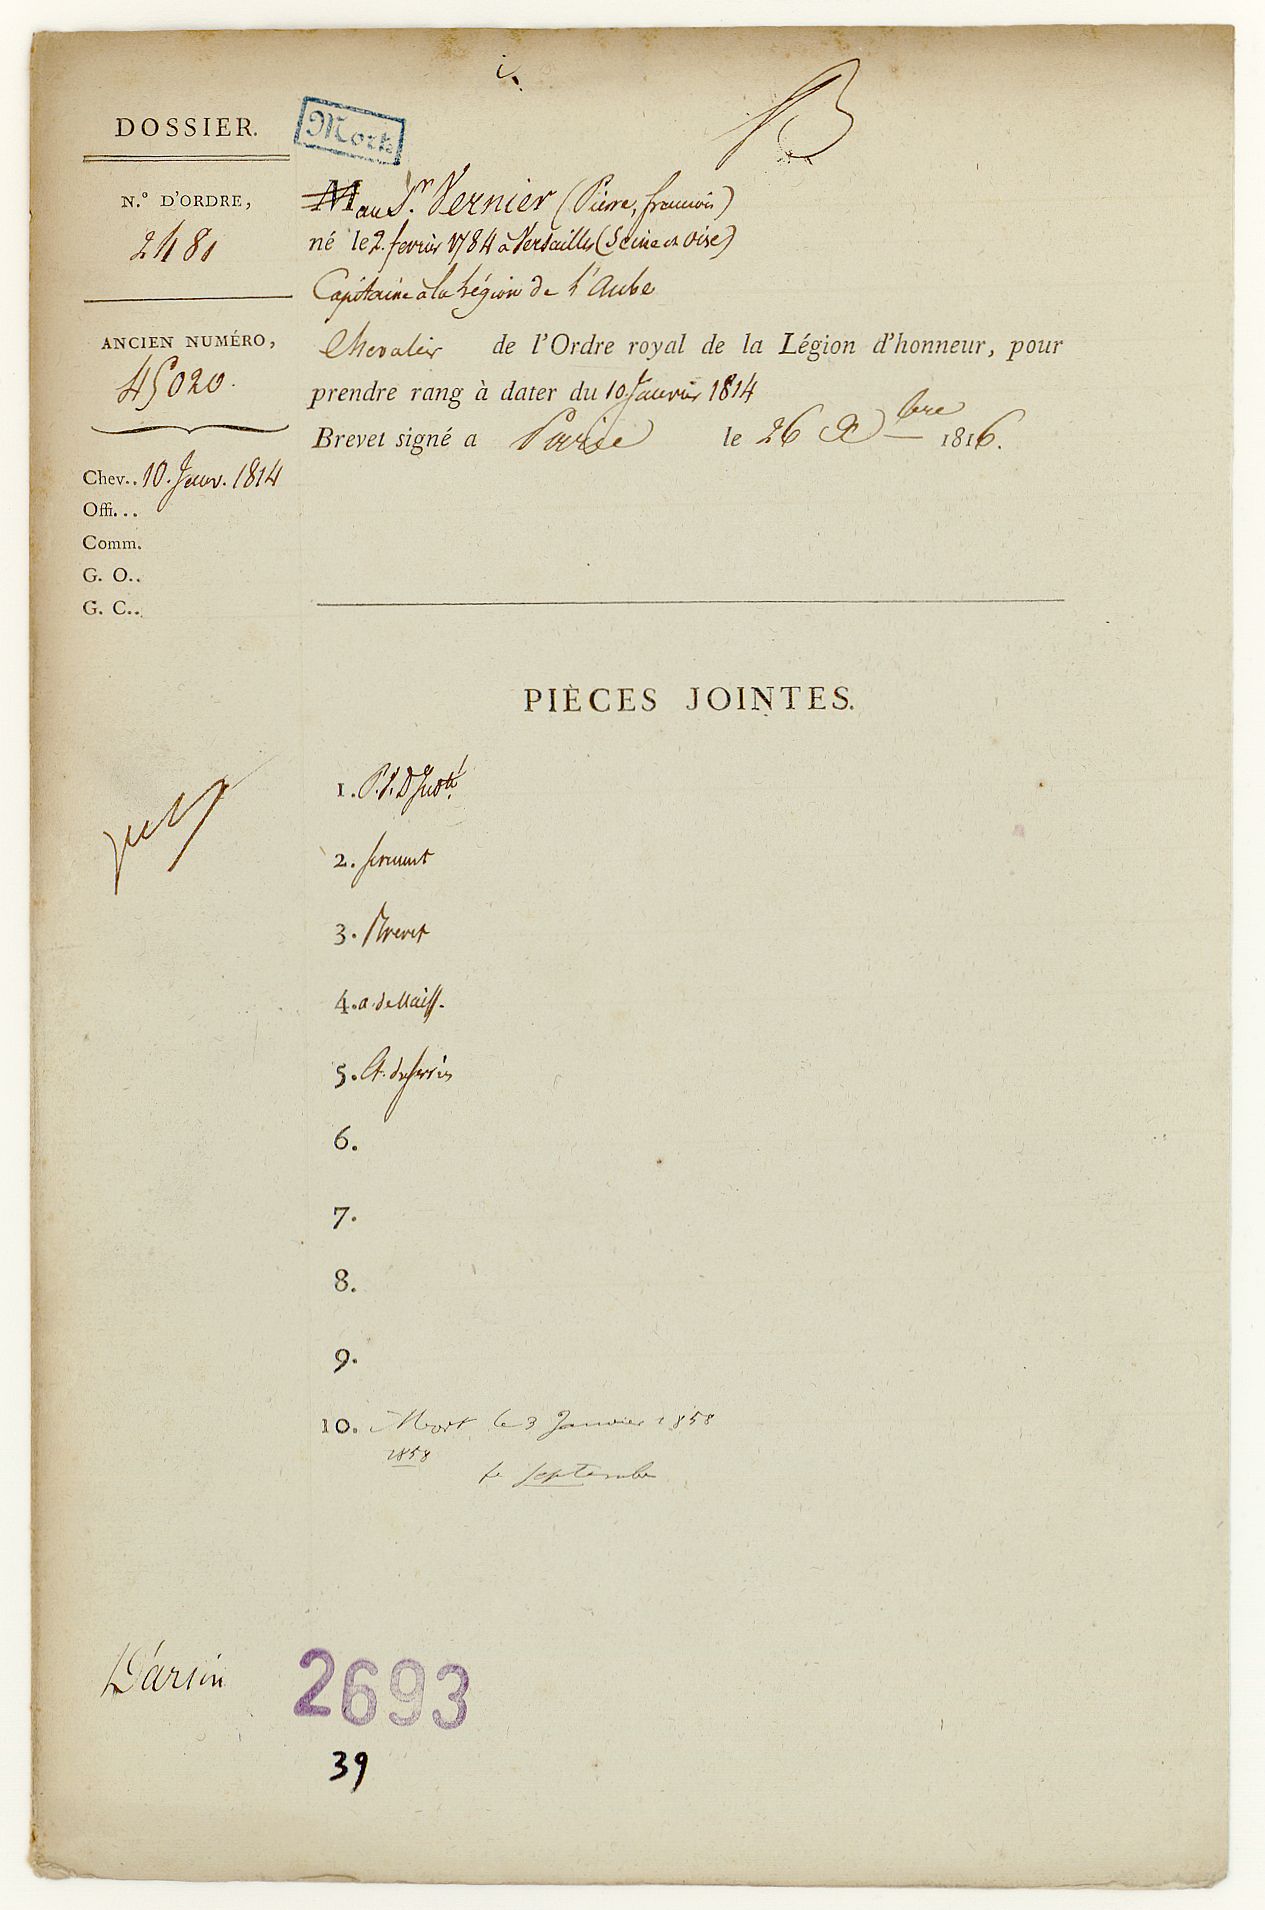 DOSSIER.
Mort
B
N.° D'ORDRE,
2481
M au Sr. Vernier (Pierre, francois)
né le 2 fevrier 1784 à Versailles (Seine et Oise)
Capitaine à la Légion de l'Aube
ANCIEN NUMÉRO,
45020.
Chevalier de l'Ordre royal de la Légion d'honneur, pour
prendre rang à dater du 10 Janvier 1814
Brevet signé a Paris le 26 Xbre 1816.
Chev.. 10. Janv. 1814
Offi...
Comm.
G. O..
G. C..
PIÈCES JOINTES.
1. P. V. D'Indté
2. serment
3. Brevet
4. a. de Naiss.
5. Et. de services
6.
7.
8.
9.
10. Mort le 3 Janvier 1858
1858
septembre
D'arsin
2693
39